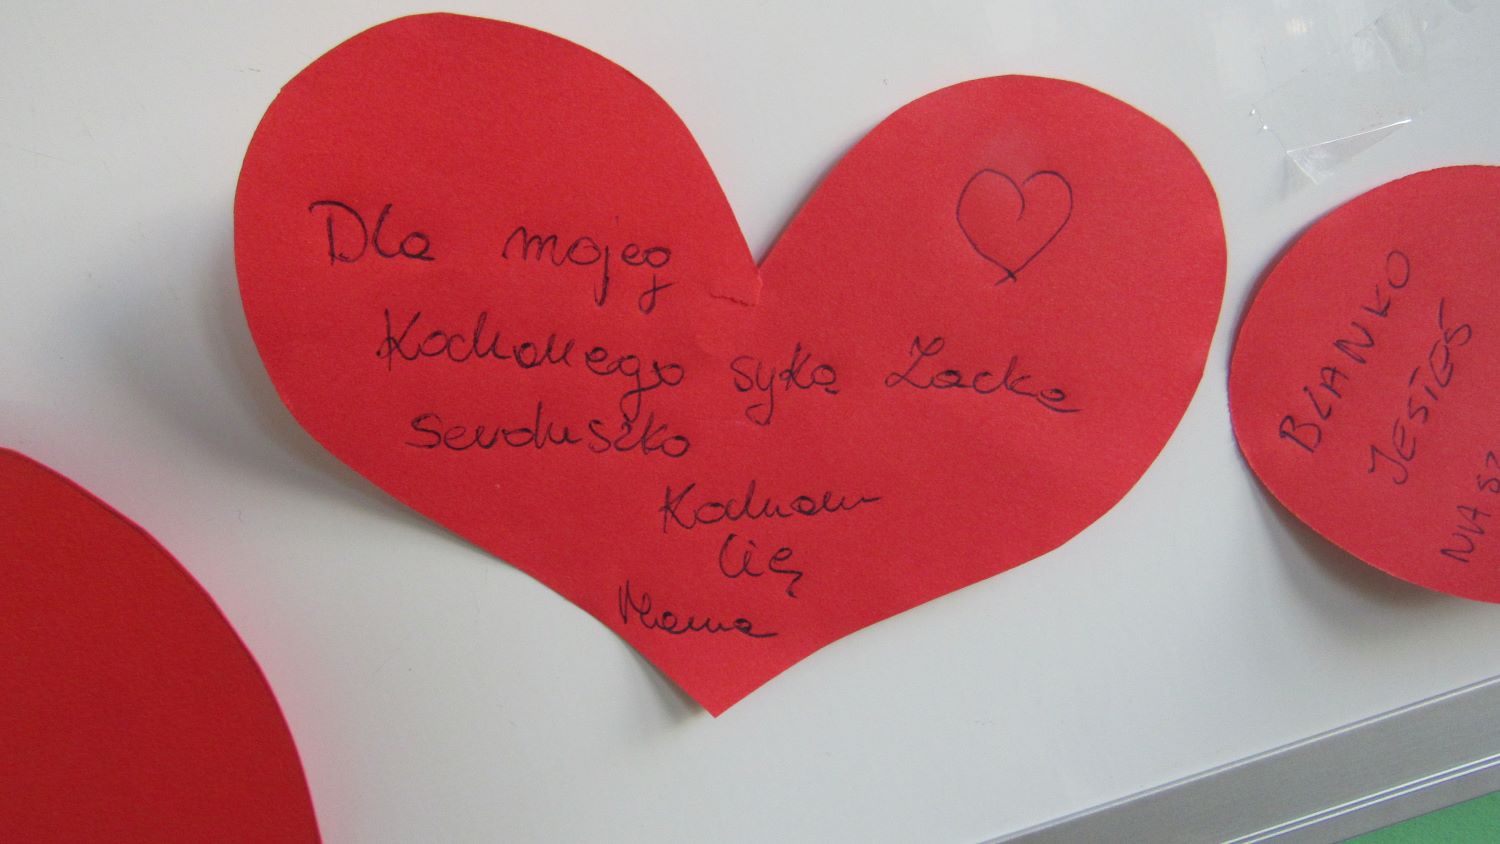 Dla mojeg
Kochanego syka Zacka
serduszko
Kocham
Cię
Mama
BLANKO
JESTEŚ
NASZ